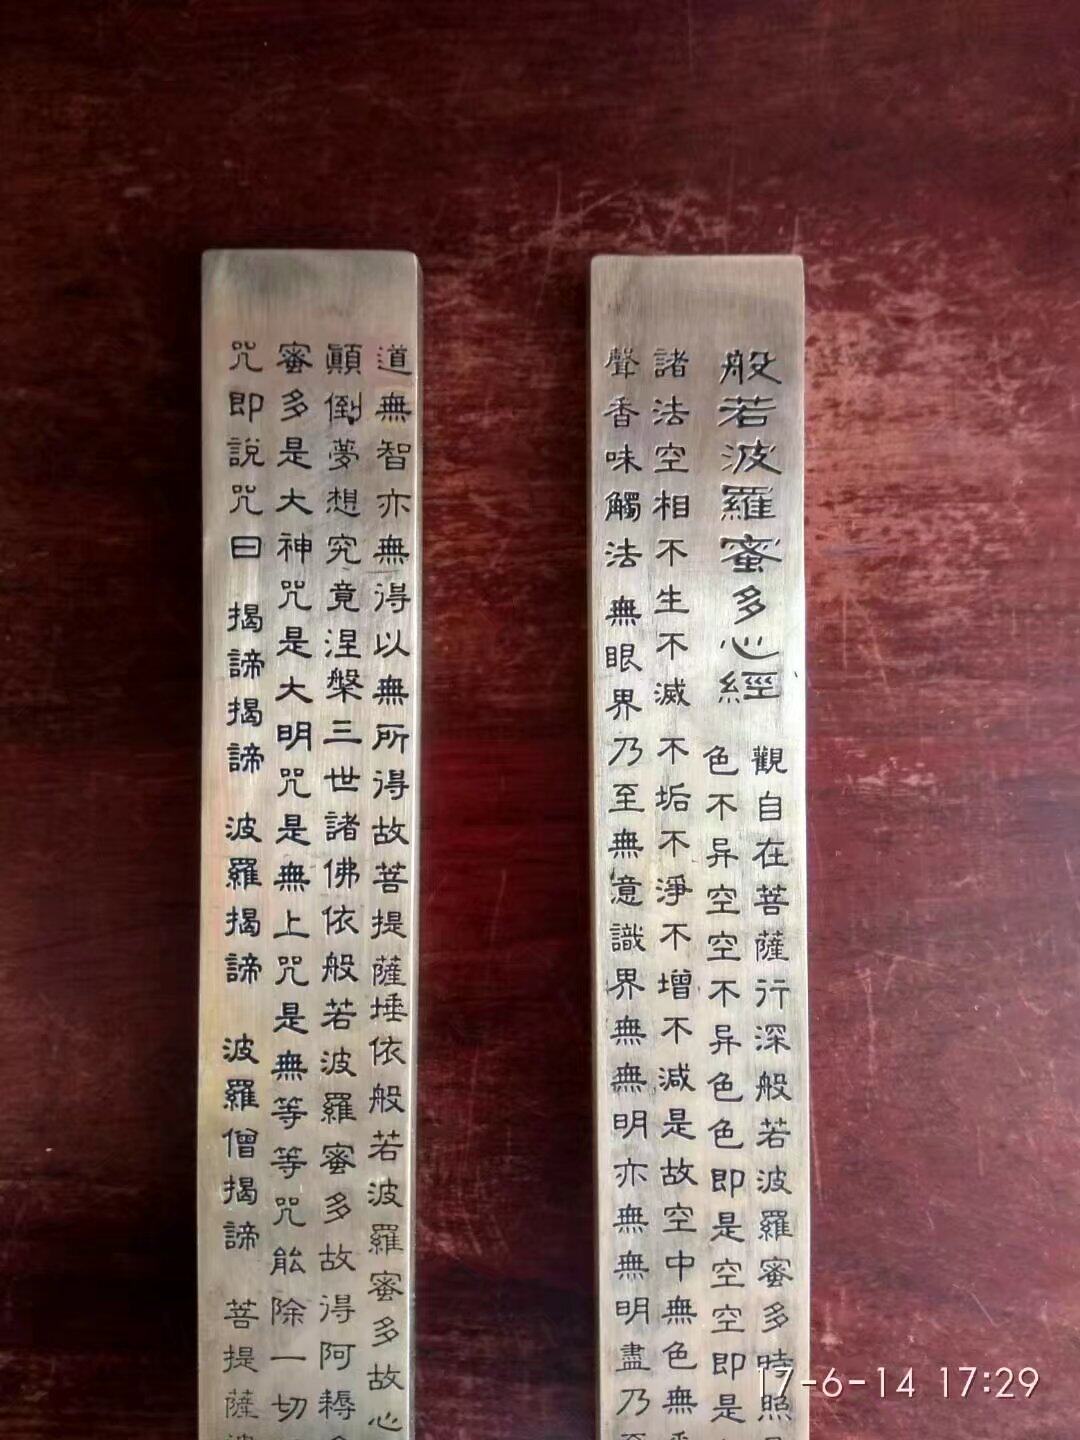 般若波羅蜜多心經
觀自在菩薩行深般若波羅蜜多時照
色不异空空不异色色即是空空即是
諸法空相不生不滅不垢不淨不增不減是故空中無色無
聲香味觸法無眼界乃至無意識界無無明亦無無明盡乃至
道無智亦無得以無所得故菩提薩埵依般若波羅蜜多故心
顛倒夢想究竟涅槃三世諸佛依般若波羅蜜多故得阿耨
蜜多是大神咒是大明咒是無上咒是無等等咒能除一切
咒即說咒曰 揭諦揭諦 波羅揭諦 波羅僧揭諦 菩提薩
17-6-14 17:29